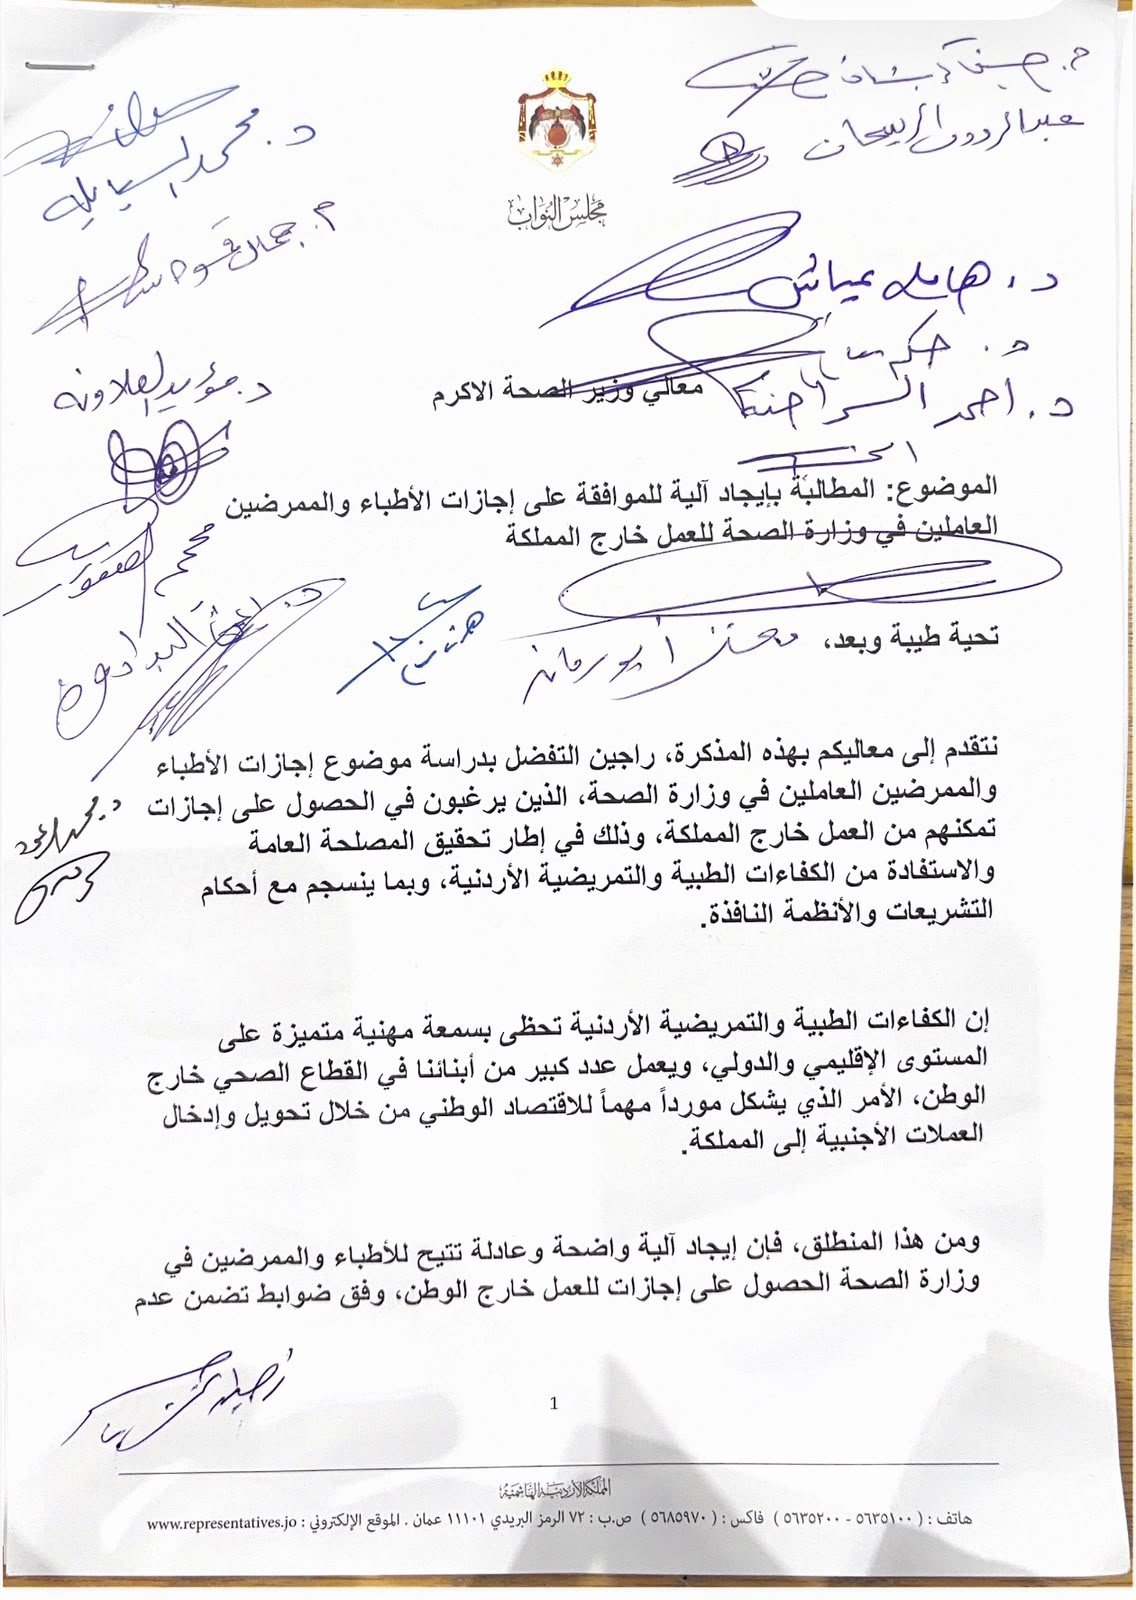 م. جمال قموه
عبدالرؤوف الربيحان
د. محمد السبايله
مجلس النواب
د. مؤيد العلاونه
د. احمد السراحنة
معالي وزير الصحة الاكرم
الموضوع: المطالبة بإيجاد آلية للموافقة على إجازات الأطباء والممرضين
العاملين في وزارة الصحة للعمل خارج المملكة
تحية طيبة وبعد،
معتز أبو رمان
نتقدم إلى معاليكم بهذه المذكرة، راجين التفضل بدراسة موضوع إجازات الأطباء
والممرضين العاملين في وزارة الصحة، الذين يرغبون في الحصول على إجازات
تمكنهم من العمل خارج المملكة، وذلك في إطار تحقيق المصلحة العامة
والاستفادة من الكفاءات الطبية والتمريضية الأردنية، وبما ينسجم مع أحكام
التشريعات والأنظمة النافذة.
إن الكفاءات الطبية والتمريضية الأردنية تحظى بسمعة مهنية متميزة على
المستوى الإقليمي والدولي، ويعمل عدد كبير من أبنائنا في القطاع الصحي خارج
الوطن، الأمر الذي يشكل مورداً مهماً للاقتصاد الوطني من خلال تحويل وإدخال
العملات الأجنبية إلى المملكة.
ومن هذا المنطلق، فإن إيجاد آلية واضحة وعادلة تتيح للأطباء والممرضين في
وزارة الصحة الحصول على إجازات للعمل خارج الوطن، وفق ضوابط تضمن عدم
1
المملكة الأردنية الهاشمية
هاتف : ( ٥٦٣٥١٠٠ - ٥٦٣٥٢٠٠ ) فاكس : ( ٥٦٨٥٩٧٠ ) ص.ب : ٧٢ الرمز البريدي ١١١٠١ عمان . الموقع الإلكتروني : www.representatives.jo